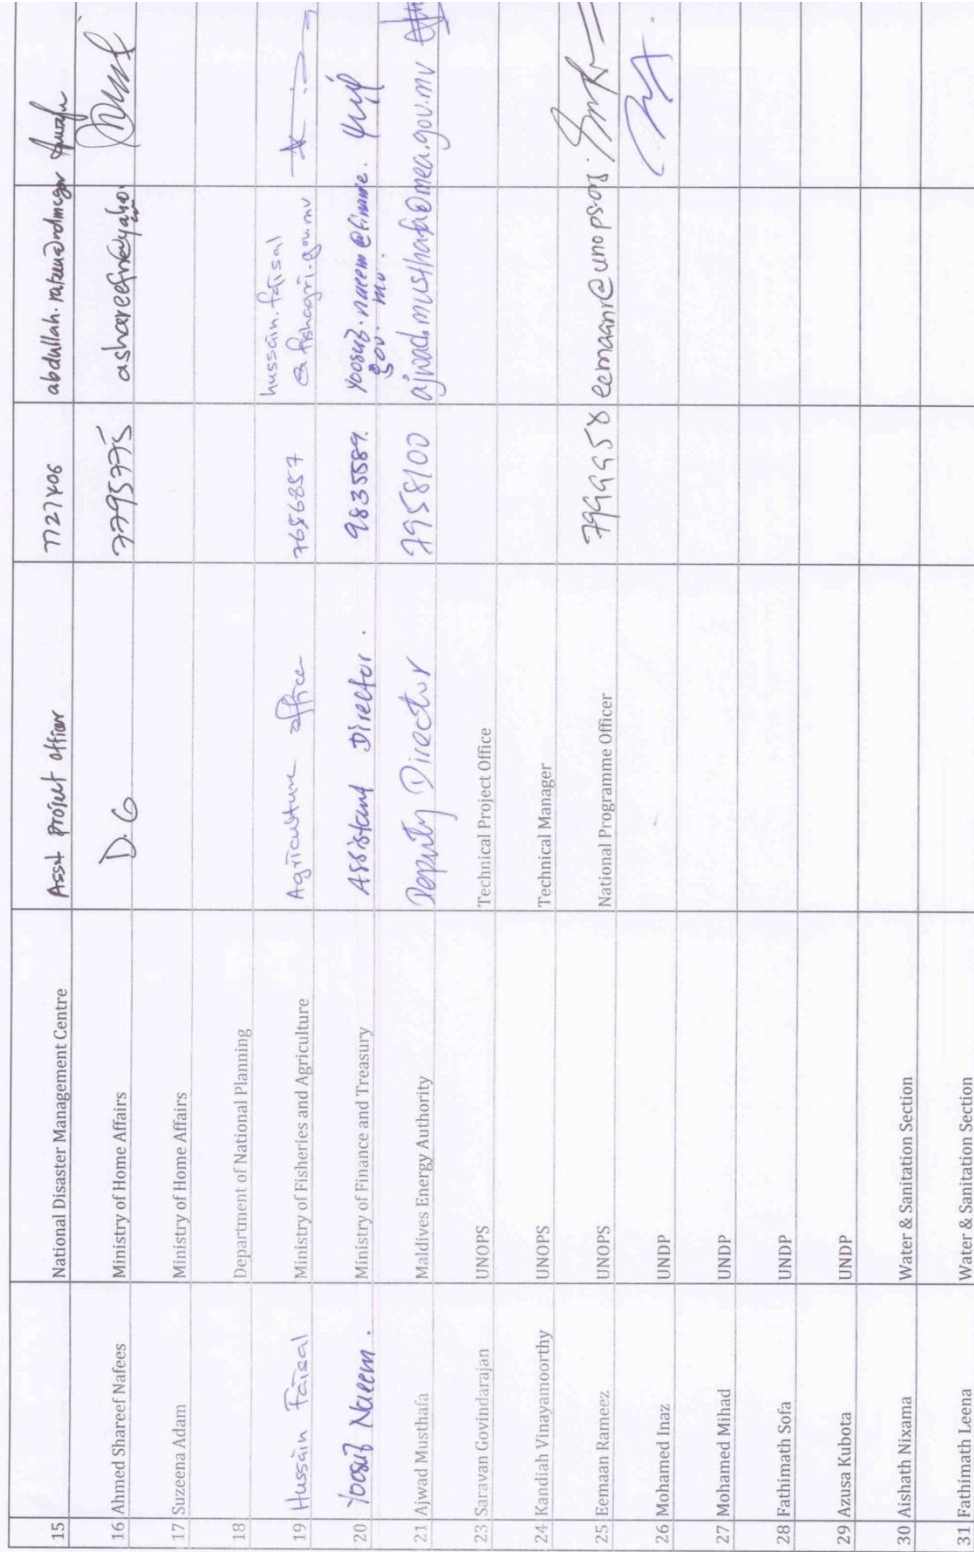 15 National Disaster Management Centre Asst project officer 7727406
16 Ahmed Shareef Nafees Ministry of Home Affairs D.G 7795775
17 Suzeena Adam Ministry of Home Affairs
18 Department of National Planning
19 Hussain Faisal Ministry of Fisheries and Agriculture Agriculture office 7686857 hussain.faisal
@fishagri.gov.mv
20 Yoosuf Naeem. Ministry of Finance and Treasury Assistant Director. 9835589. yoosuf.naeem@finance.
gov.mv.
21 Ajwad Musthafa Maldives Energy Authority Deputy Director 7958100 ajwad.musthafa@mea.gov.mv
23 Saravan Govindarajan UNOPS Technical Project Office
24 Kandiah Vinayamoorthy UNOPS Technical Manager
25 Eemaan Rameez UNOPS National Programme Officer eemaanr@unops.org
26 Mohamed Inaz UNDP
27 Mohamed Mihad UNDP
28 Fathimath Sofa UNDP
29 Azusa Kubota UNDP
30 Aishath Nixama Water & Sanitation Section
31 Fathimath Leena Water & Sanitation Section